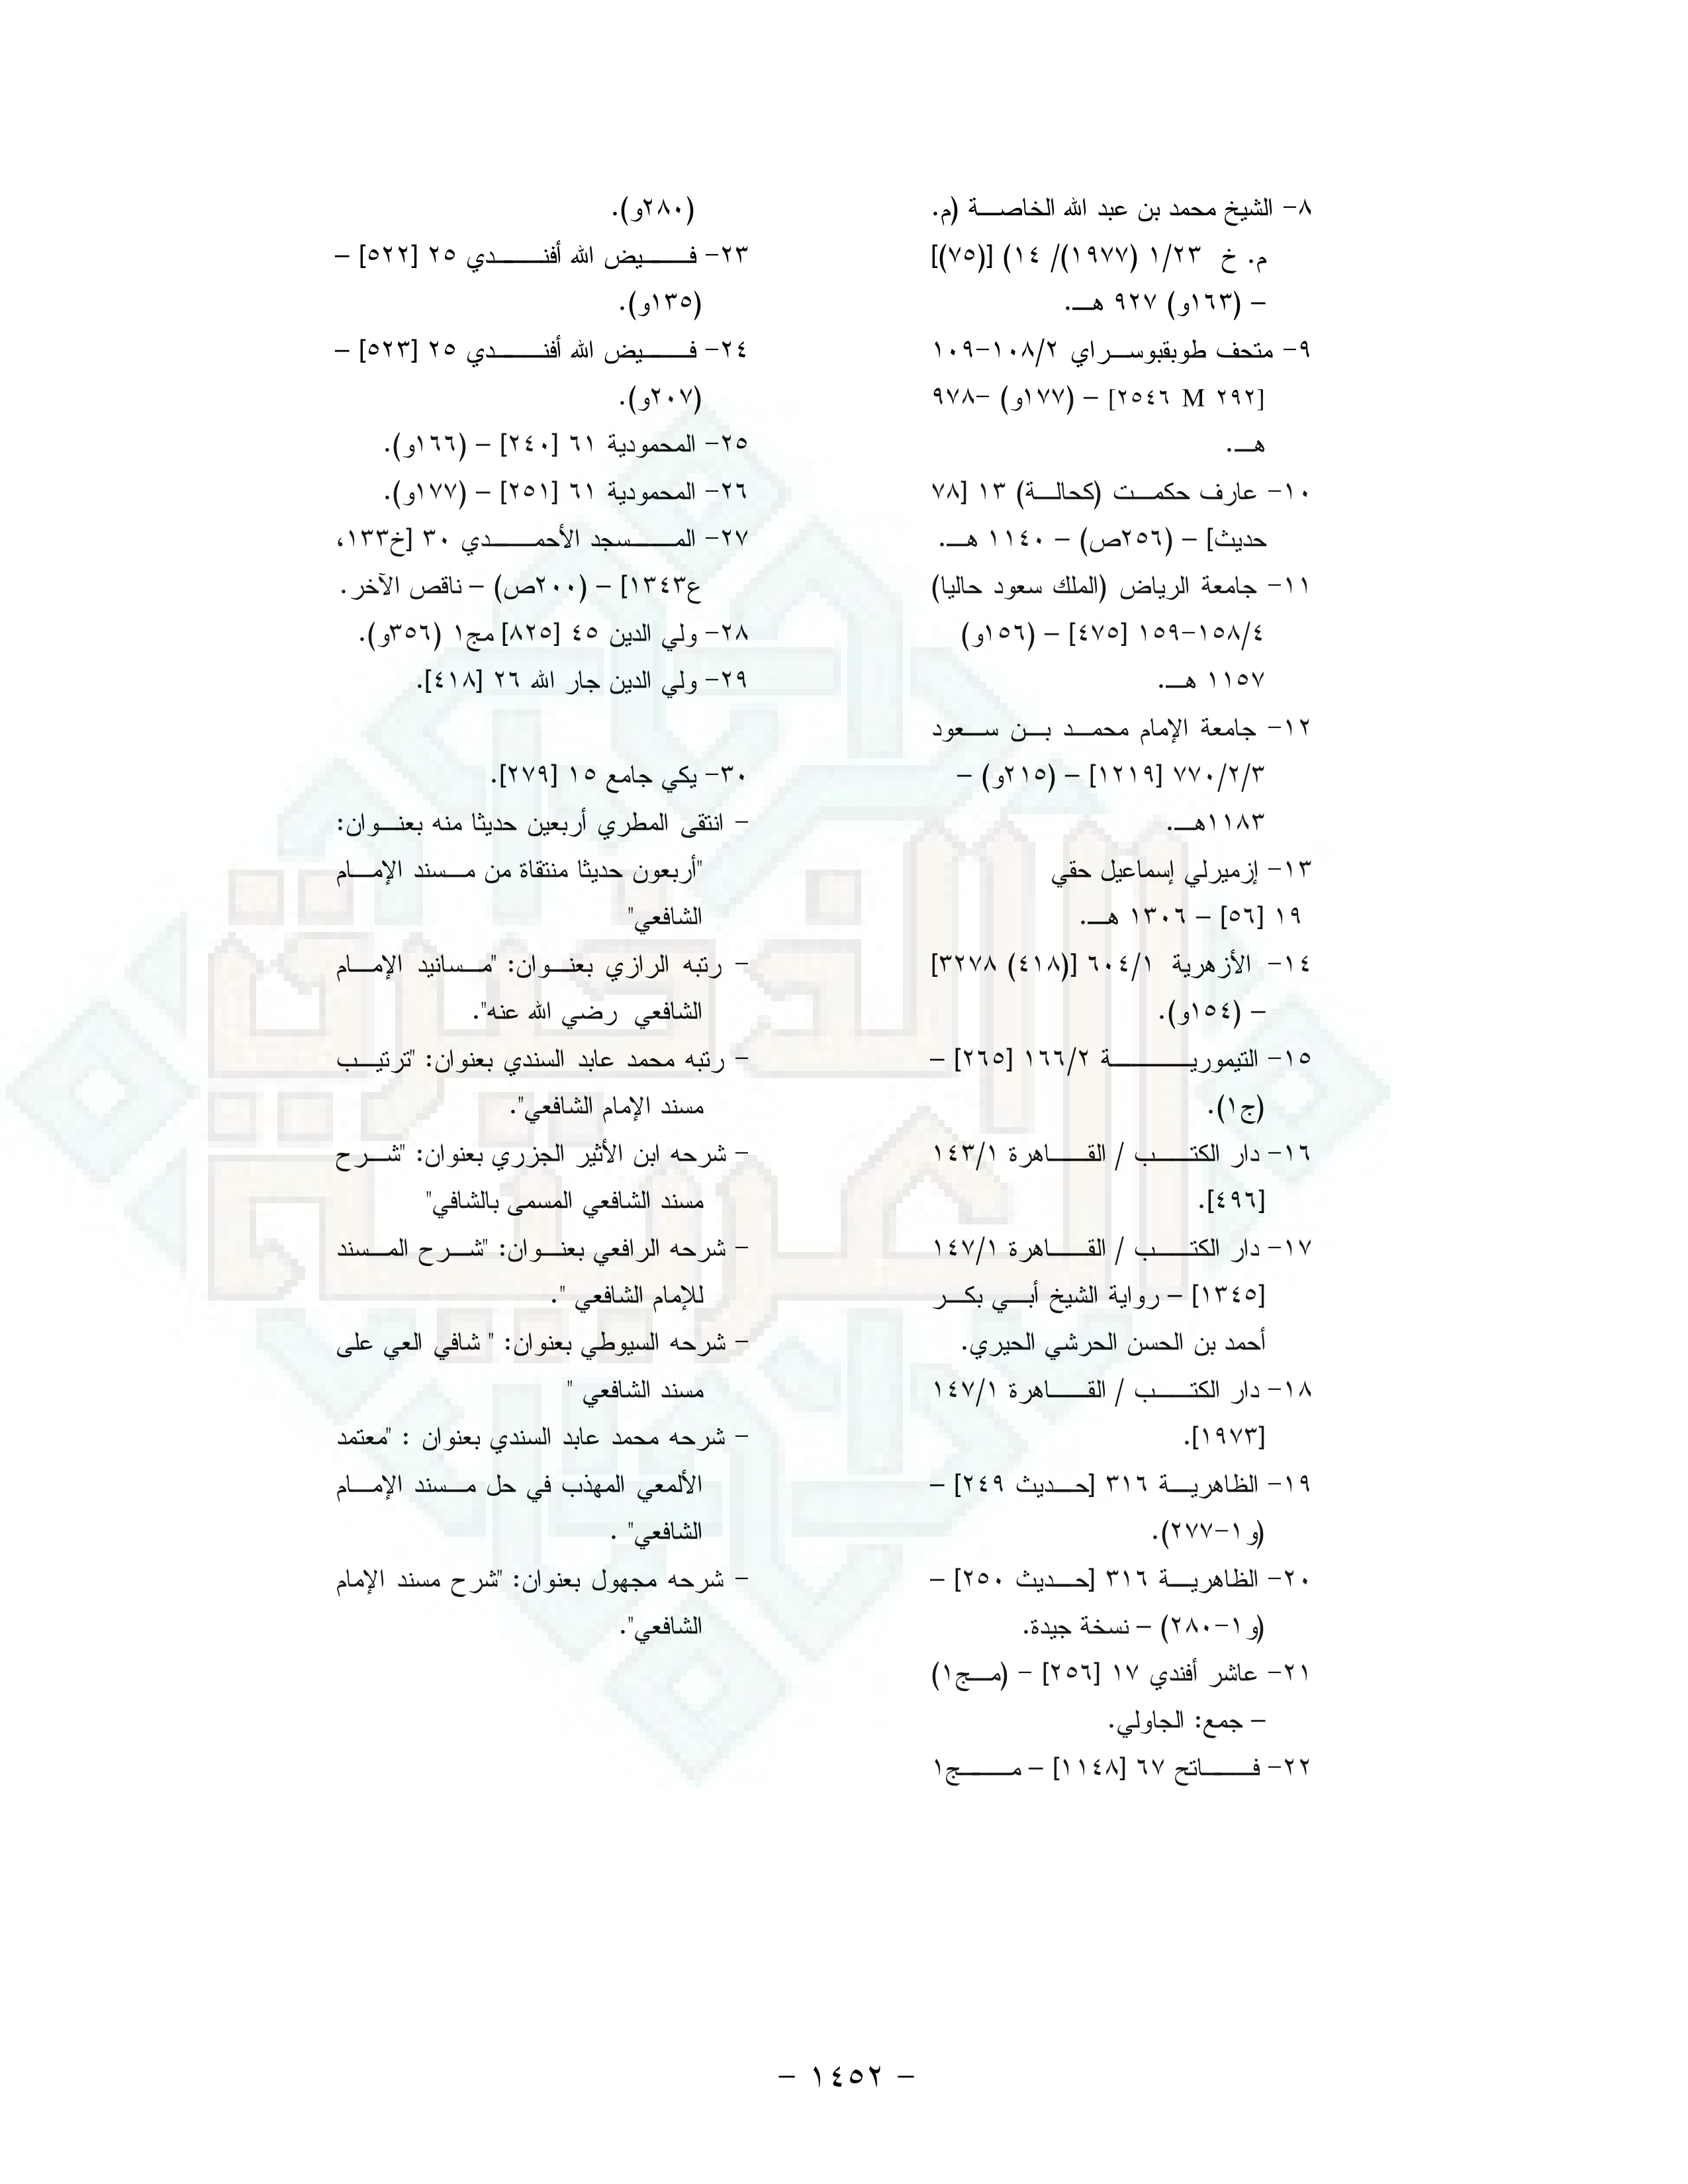 ٨- الشيخ محمد بن عبد الله الخاصة (م.
م. خ ١/٢٣ (١٩٧٧)/ ١٤) [(٧٥)]
– (١٦٣و) ٩٢٧ هـ.
٩- متحف طوبقبوسراي ١٠٨/٢-١٠٩
[٢٥٤٦ M ٢٩٢] – (١٧٧و) -٩٧٨
هـ.
١٠- عارف حكمت (كحالة) ١٣ [٧٨
حديث] – (٢٥٦ص) – ١١٤٠ هـ.
١١- جامعة الرياض (الملك سعود حاليا)
١٥٨/٤-١٥٩ [٤٧٥] – (١٥٦و)
١١٥٧ هـ.
١٢- جامعة الإمام محمد بن سعود
٧٧٠/٢/٣ [١٢١٩] – (٢١٥و) –
١١٨٣هـ.
١٣- إزميرلي إسماعيل حقي
١٩ [٥٦] – ١٣٠٦ هـ.
١٤- الأزهرية ٦٠٤/١ [(٤١٨) ٣٢٧٨]
– (١٥٤و).
١٥- التيمورية ١٦٦/٢ [٢٦٥] –
(ج١).
١٦- دار الكتب / القاهرة ١٤٣/١
[٤٩٦].
١٧- دار الكتب / القاهرة ١٤٧/١
[١٣٤٥] – رواية الشيخ أبي بكر
أحمد بن الحسن الحرشي الحيري.
١٨- دار الكتب / القاهرة ١٤٧/١
[١٩٧٣].
١٩- الظاهرية ٣١٦ [حديث ٢٤٩] –
(و١-٢٧٧).
٢٠- الظاهرية ٣١٦ [حديث ٢٥٠] –
(و١-٢٨٠) – نسخة جيدة.
٢١- عاشر أفندي ١٧ [٢٥٦] – (مج١)
– جمع: الجاولي.
٢٢- فاتح ٦٧ [١١٤٨] – مج١
(٢٨٠و).
٢٣- فيض الله أفندي ٢٥ [٥٢٢] –
(١٣٥و).
٢٤- فيض الله أفندي ٢٥ [٥٢٣] –
(٢٠٧و).
٢٥- المحمودية ٦١ [٢٤٠] – (١٦٦و).
٢٦- المحمودية ٦١ [٢٥١] – (١٧٧و).
٢٧- المسجد الأحمدي ٣٠ [خ١٣٣،
ع١٣٤٣] – (٢٠٠ص) – ناقص الآخر.
٢٨- ولي الدين ٤٥ [٨٢٥] مج١ (٣٥٦و).
٢٩- ولي الدين جار الله ٢٦ [٤١٨].
٣٠- يكي جامع ١٥ [٢٧٩].
– انتقى المطري أربعين حديثا منه بعنوان:
"أربعون حديثا منتقاة من مسند الإمام
الشافعي"
– رتبه الرازي بعنوان: "مسانيد الإمام
الشافعي رضي الله عنه".
– رتبه محمد عابد السندي بعنوان: "ترتيب
مسند الإمام الشافعي".
– شرحه ابن الأثير الجزري بعنوان: "شرح
مسند الشافعي المسمى بالشافي"
– شرحه الرافعي بعنوان: "شرح المسند
للإمام الشافعي ".
– شرحه السيوطي بعنوان: " شافي العي على
مسند الشافعي "
– شرحه محمد عابد السندي بعنوان : "معتمد
الألمعي المهذب في حل مسند الإمام
الشافعي" .
– شرحه مجهول بعنوان: "شرح مسند الإمام
الشافعي".
الذخيرة
العربية
– ١٤٥٢ –